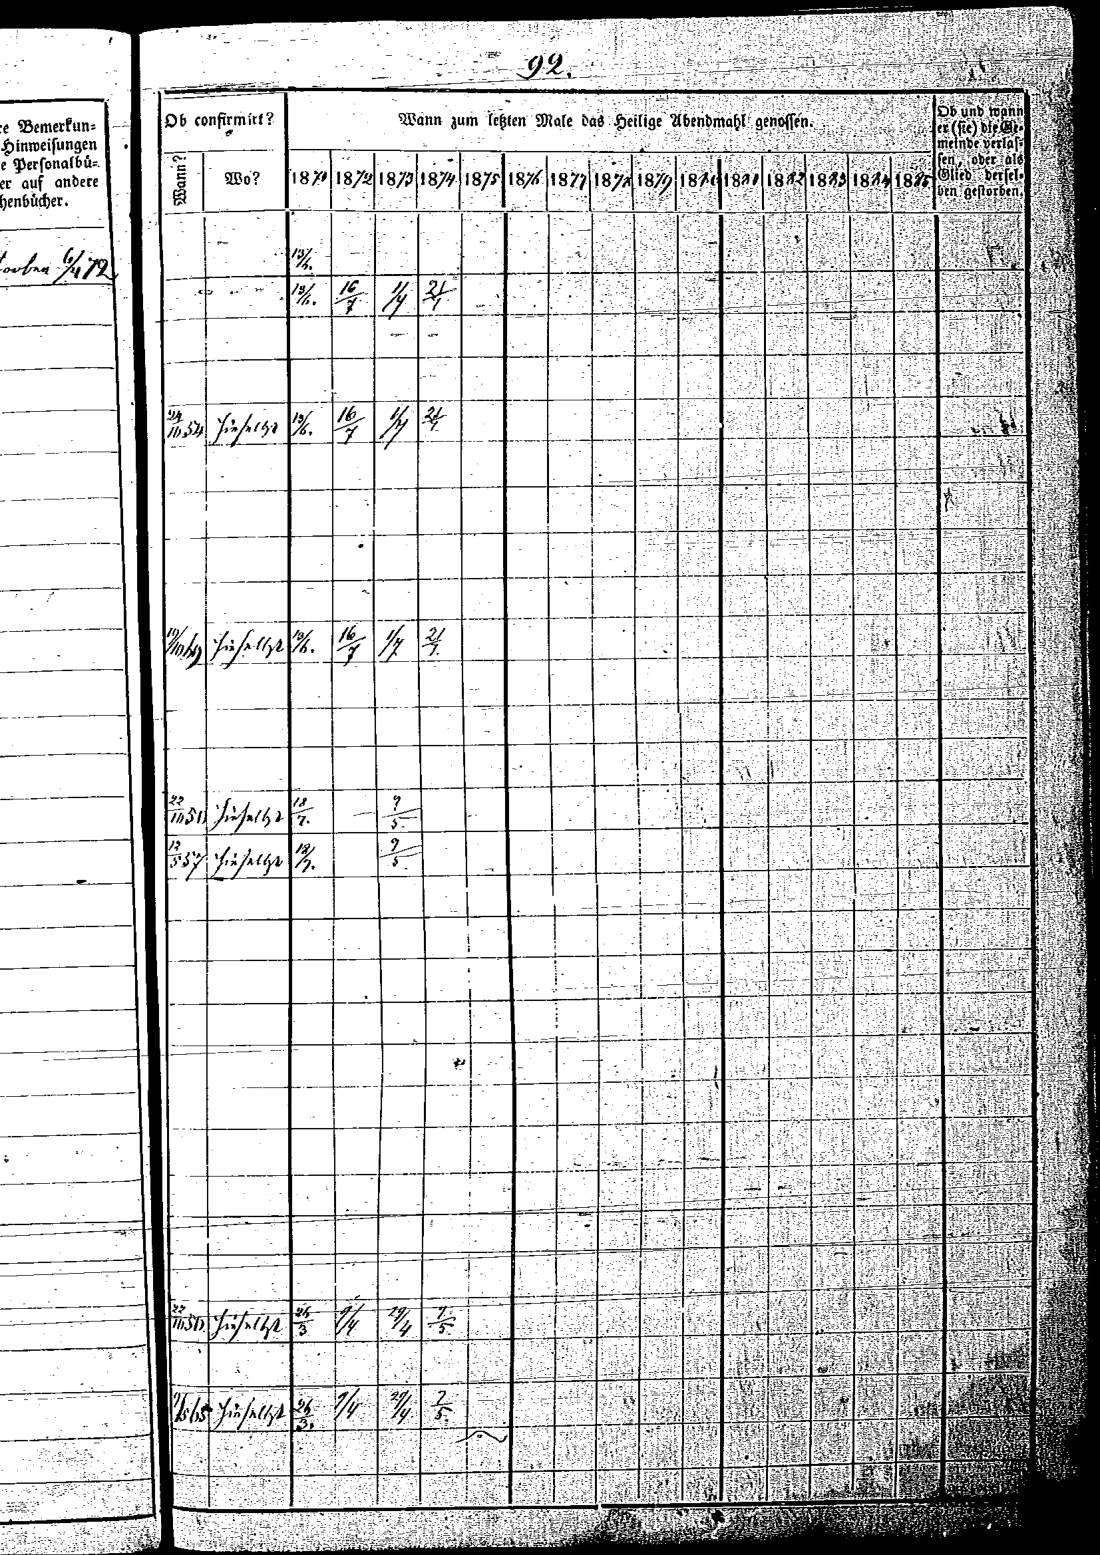 92.
re Bemerkun-
Hinweisungen
e Personalbü-
er auf andere
henbücher.
Ob confirmirt?
Wann zum letzten Male das Heilige Abendmahl genossen.
Ob und wann
er (sie) die Ge-
meinde verlas-
sen, oder als
Glied dersel-
ben gestorben.
Wann?
Wo?
1871 1872 1873 1874 1875 1876 1877 1878 1879 1880 1881 1882 1883 1884 1885
torben 6/4 72
13/6.
13/6. 16/7 1/7 21/1
24/10 54 hieselbst 13/6. 16/7 1/7 21/1
hieselbst 13/6. 16/7 1/7 21/1
22/10 50 hieselbst 18/7. 9/5.
12/5 57 hieselbst 18/7. 9/5
22/10 50 hieselbst 26/3 9/4 29/4 7/5.
hieselbst 26/3. 9/4 29/4 7/5.